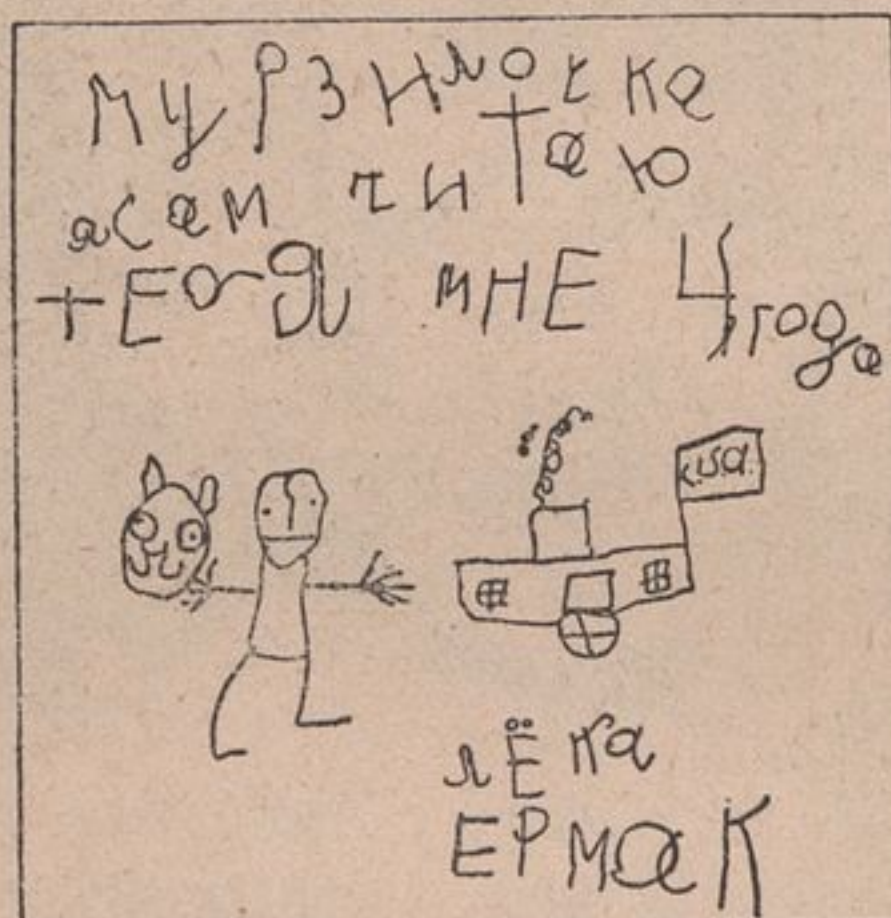 МуРЗИлочка
ясам читаю
тЕбя мНЕ 4 года
лЁка
ЕРмаК